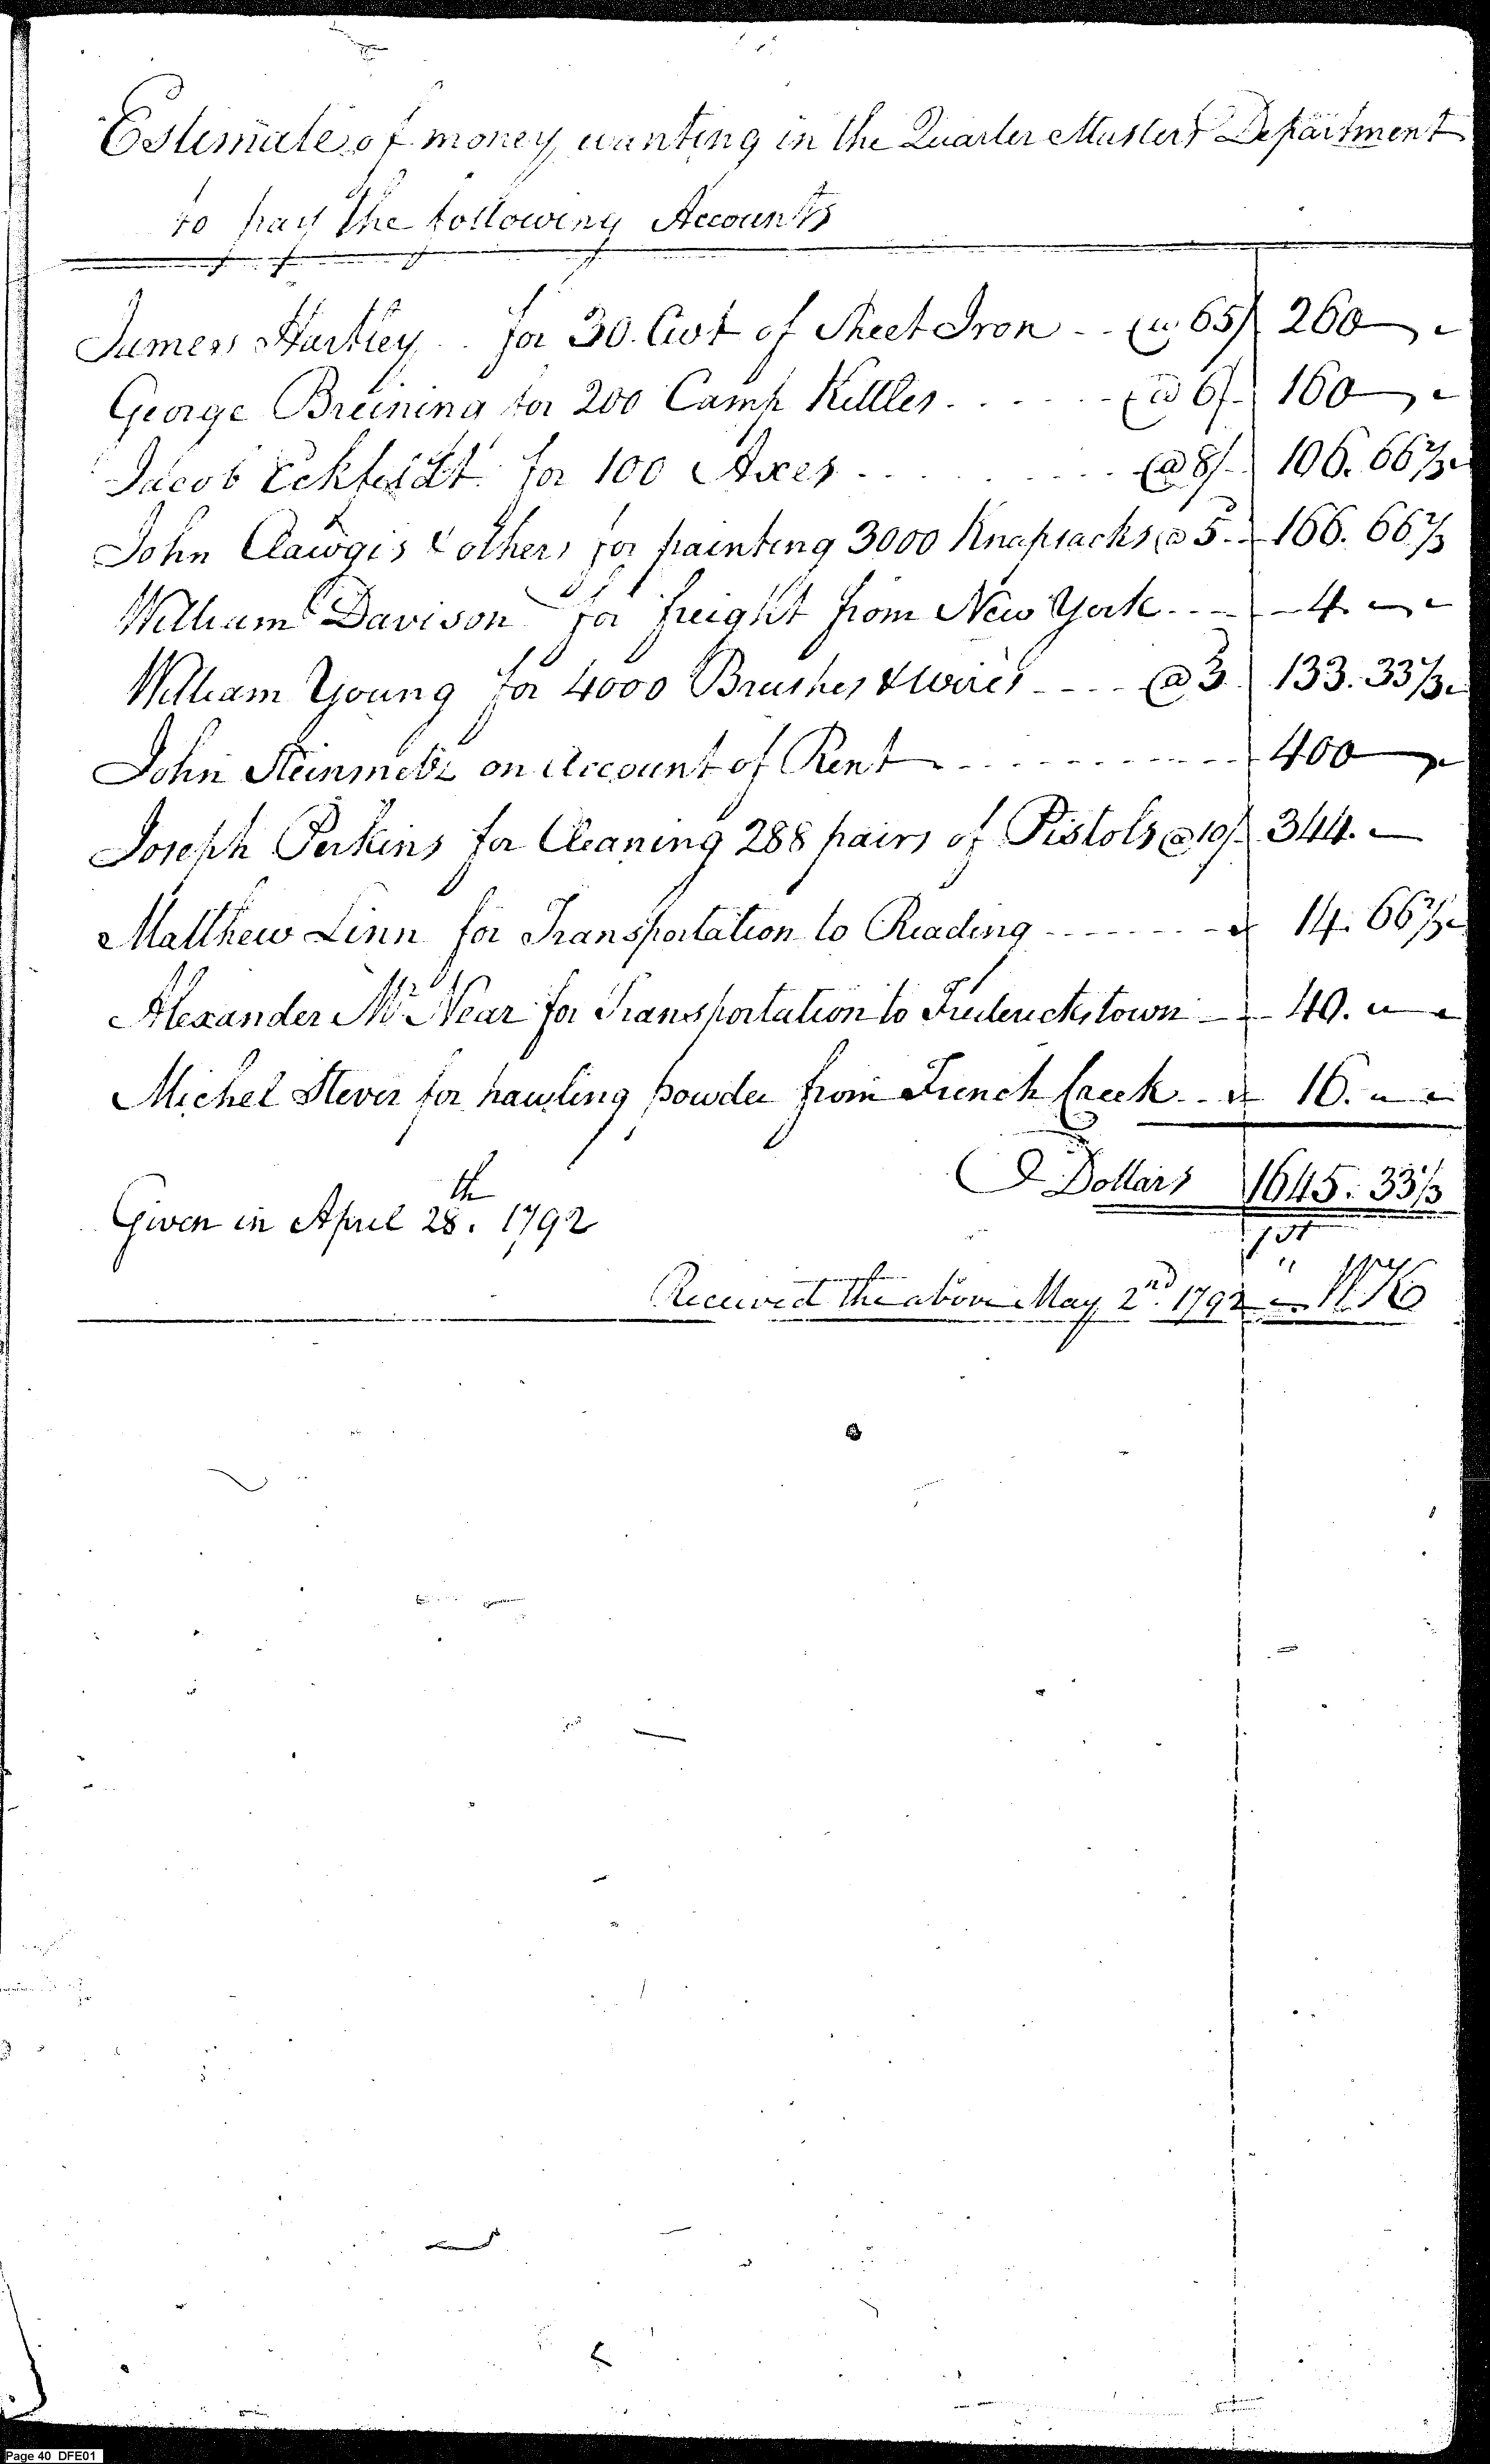 Estimate of money wanting in the Quarter Masters Department
to pay the following Accounts
James Hartley .. for 30. Cwt of Sheet Iron - - @ 65/ 260 — "
George Breining for 200 Camp Kittles . . . . . - @ 6/- 160 — "
Jacob Eckfeldt for 100 Axes - . . . . . . . . @ 8/- 106. 66 2/3
John Clawgis & others for painting 3000 Knapsacks @ 5. - 166. 66 2/3
William Davison for freight from New York - - - - 4. " "
William Young for 4000 Brushes & Wires - - - - @ 3. 133. 33 1/3
John Steinmetz on Account of Rent - - - - - - - - - - - 400 —
Joseph Perkins for Cleaning 288 pairs of Pistols @ 10/- 344. —
Matthew Linn for Transportation to Reading - - - - - - - 14. 66 2/3
Alexander Mc Near for Transportation to Fredericktown - - 40. " "
Michel Stever for hauling powder from French Creek - - 16. " "
Dollars 1645. 33 1/3
Given in April 28th. 1792
Received the above May 2nd. 1792
Page 40 DFE01